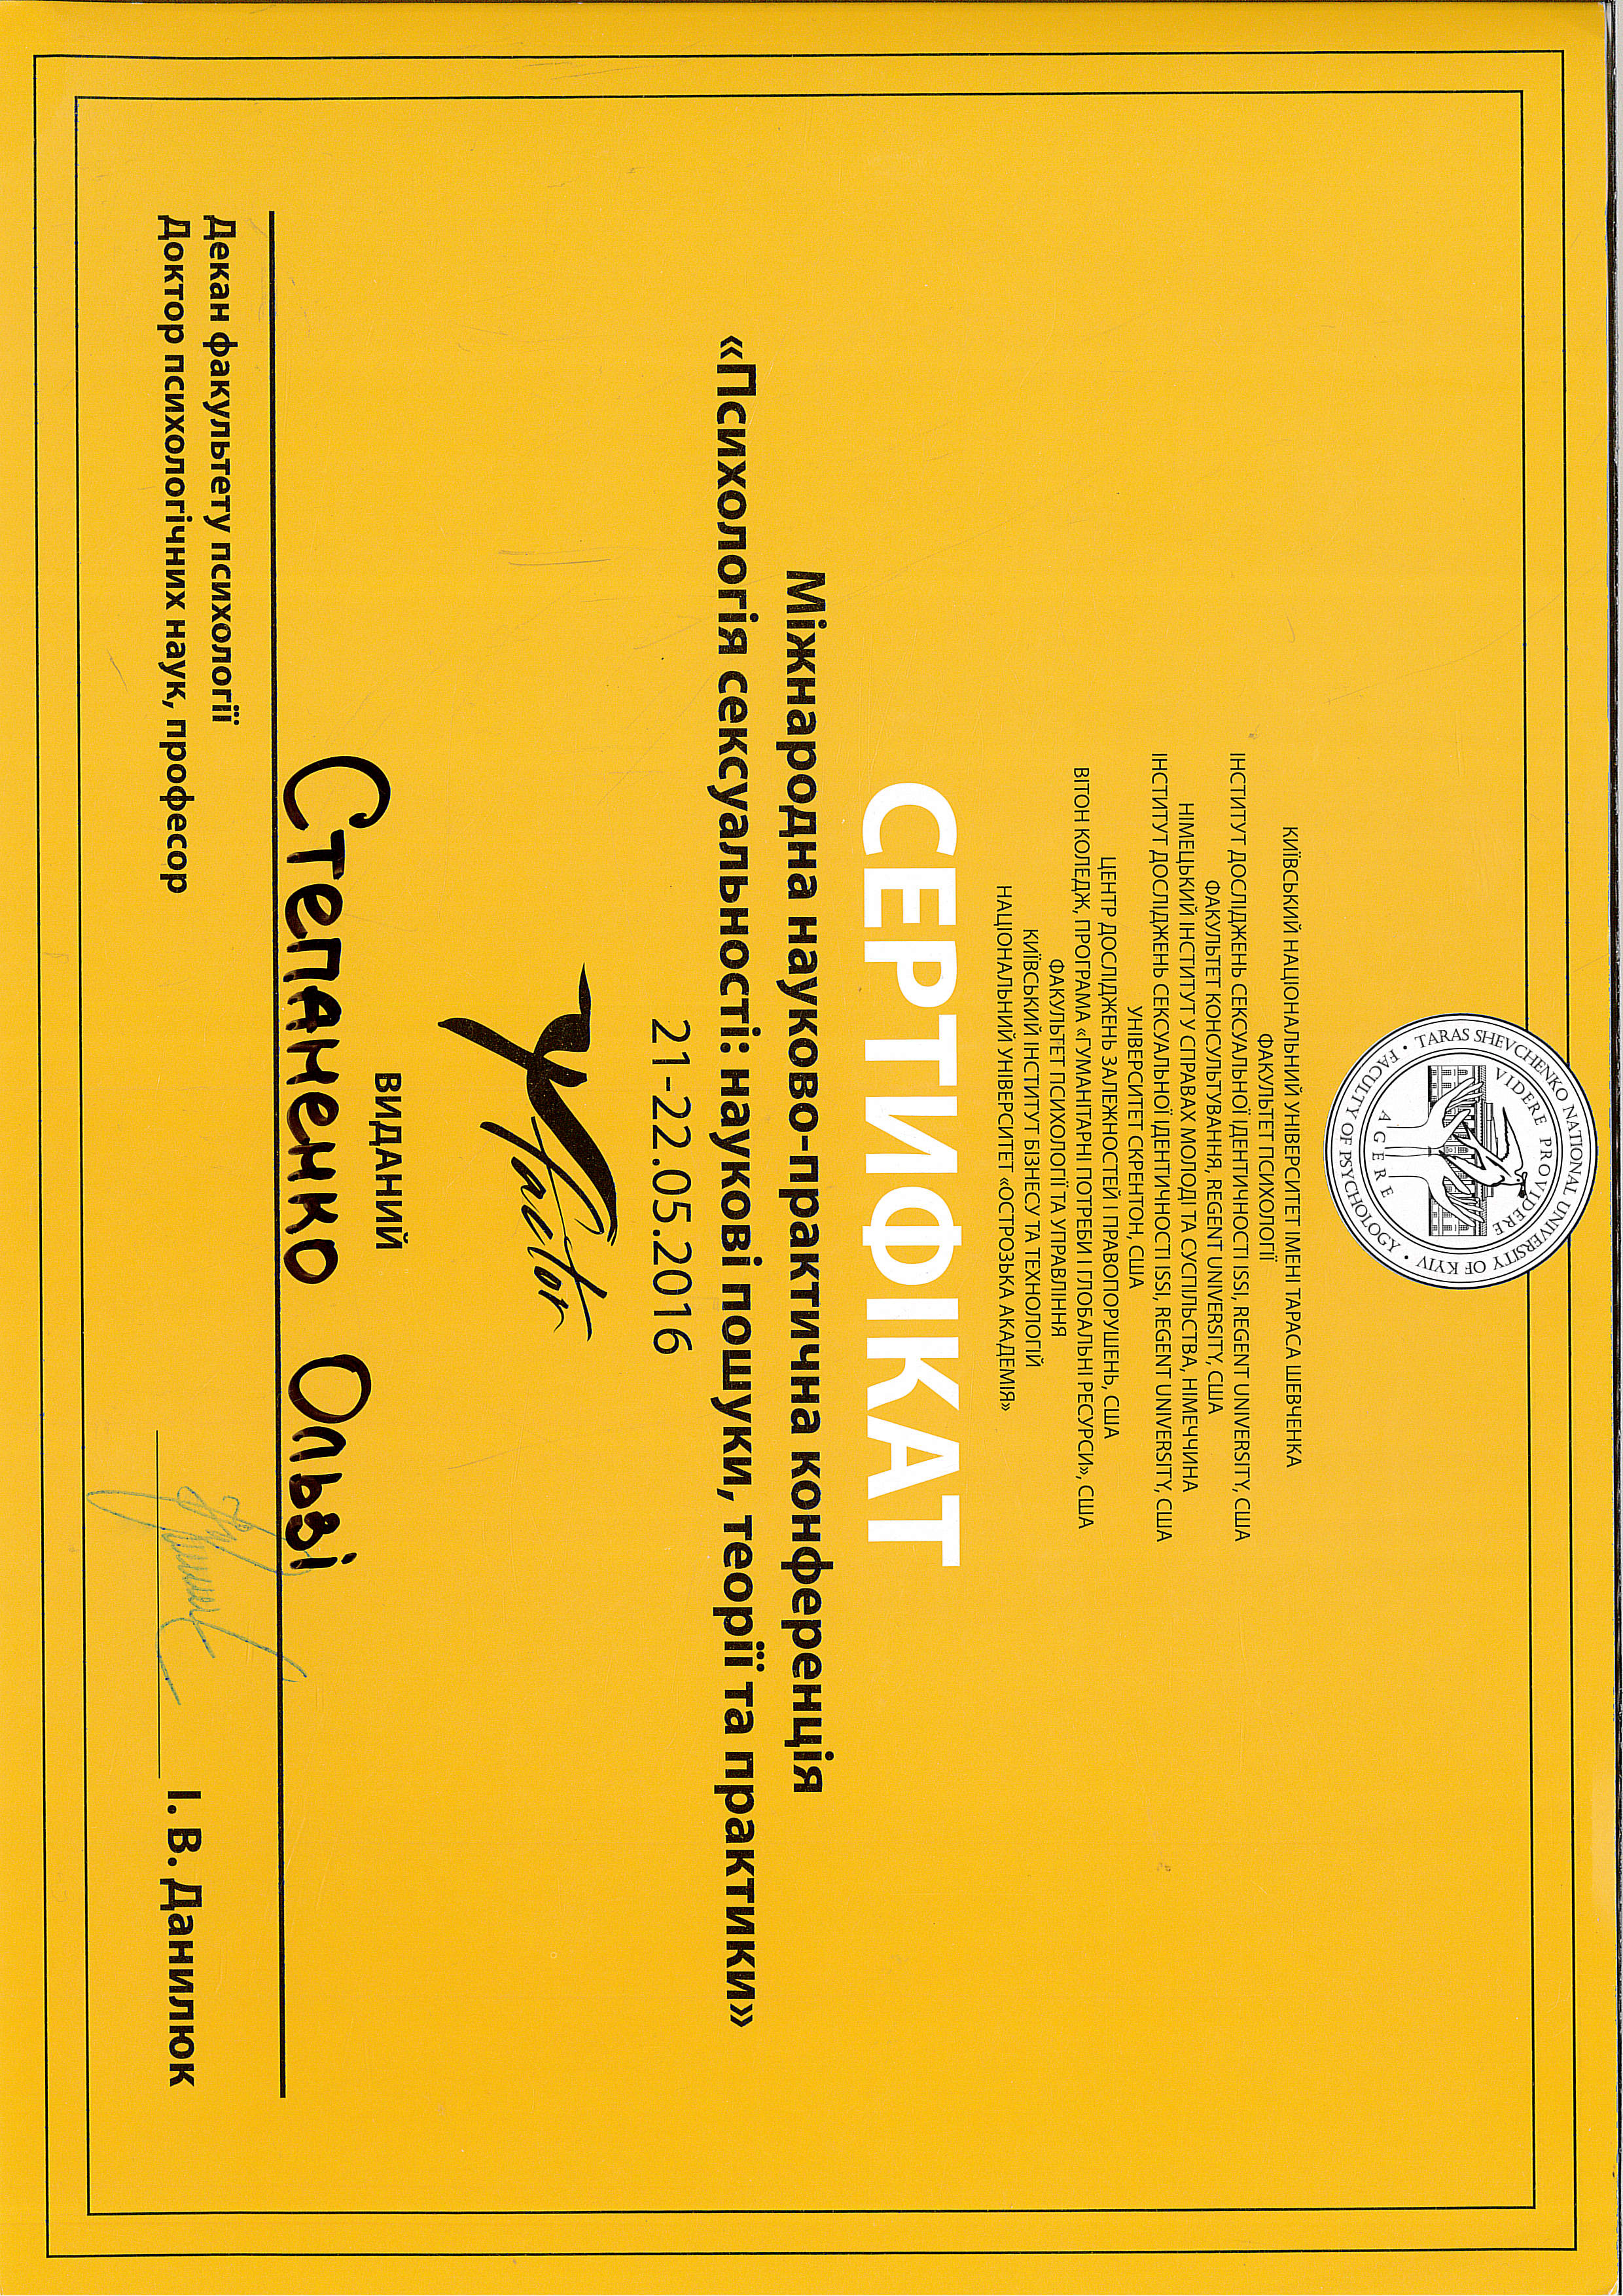 TARAS SHEVCHENKO NATIONAL UNIVERSITY OF KYIV
VIDERE PROVIDERE
AGERE
• FACULTY OF PSYCHOLOGY •
КИЇВСЬКИЙ НАЦІОНАЛЬНИЙ УНІВЕРСИТЕТ ІМЕНІ ТАРАСА ШЕВЧЕНКА
ФАКУЛЬТЕТ ПСИХОЛОГІЇ
ІНСТИТУТ ДОСЛІДЖЕНЬ СЕКСУАЛЬНОЇ ІДЕНТИЧНОСТІ ISSI, REGENT UNIVERSITY, США
ФАКУЛЬТЕТ КОНСУЛЬТУВАННЯ, REGENT UNIVERSITY, США
НІМЕЦЬКИЙ ІНСТИТУТ У СПРАВАХ МОЛОДІ ТА СУСПІЛЬСТВА, НІМЕЧЧИНА
ІНСТИТУТ ДОСЛІДЖЕНЬ СЕКСУАЛЬНОЇ ІДЕНТИЧНОСТІ ISSI, REGENT UNIVERSITY, США
УНІВЕРСИТЕТ СКРЕНТОН, США
ЦЕНТР ДОСЛІДЖЕНЬ ЗАЛЕЖНОСТЕЙ І ПРАВОПОРУШЕНЬ, США
ВІТОН КОЛЕДЖ, ПРОГРАМА «ГУМАНІТАРНІ ПОТРЕБИ І ГЛОБАЛЬНІ РЕСУРСИ», США
ФАКУЛЬТЕТ ПСИХОЛОГІЇ ТА УПРАВЛІННЯ
КИЇВСЬКИЙ ІНСТИТУТ БІЗНЕСУ ТА ТЕХНОЛОГІЙ
НАЦІОНАЛЬНИЙ УНІВЕРСИТЕТ «ОСТРОЗЬКА АКАДЕМІЯ»
СЕРТИФІКАТ
Міжнародна науково-практична конференція
«Психологія сексуальності: наукові пошуки, теорії та практики»
21-22.05.2016
Ψ factor
ВИДАНИЙ
Степаненко Ользі
Декан факультету психології
Доктор психологічних наук, професор
І. В. Данилюк